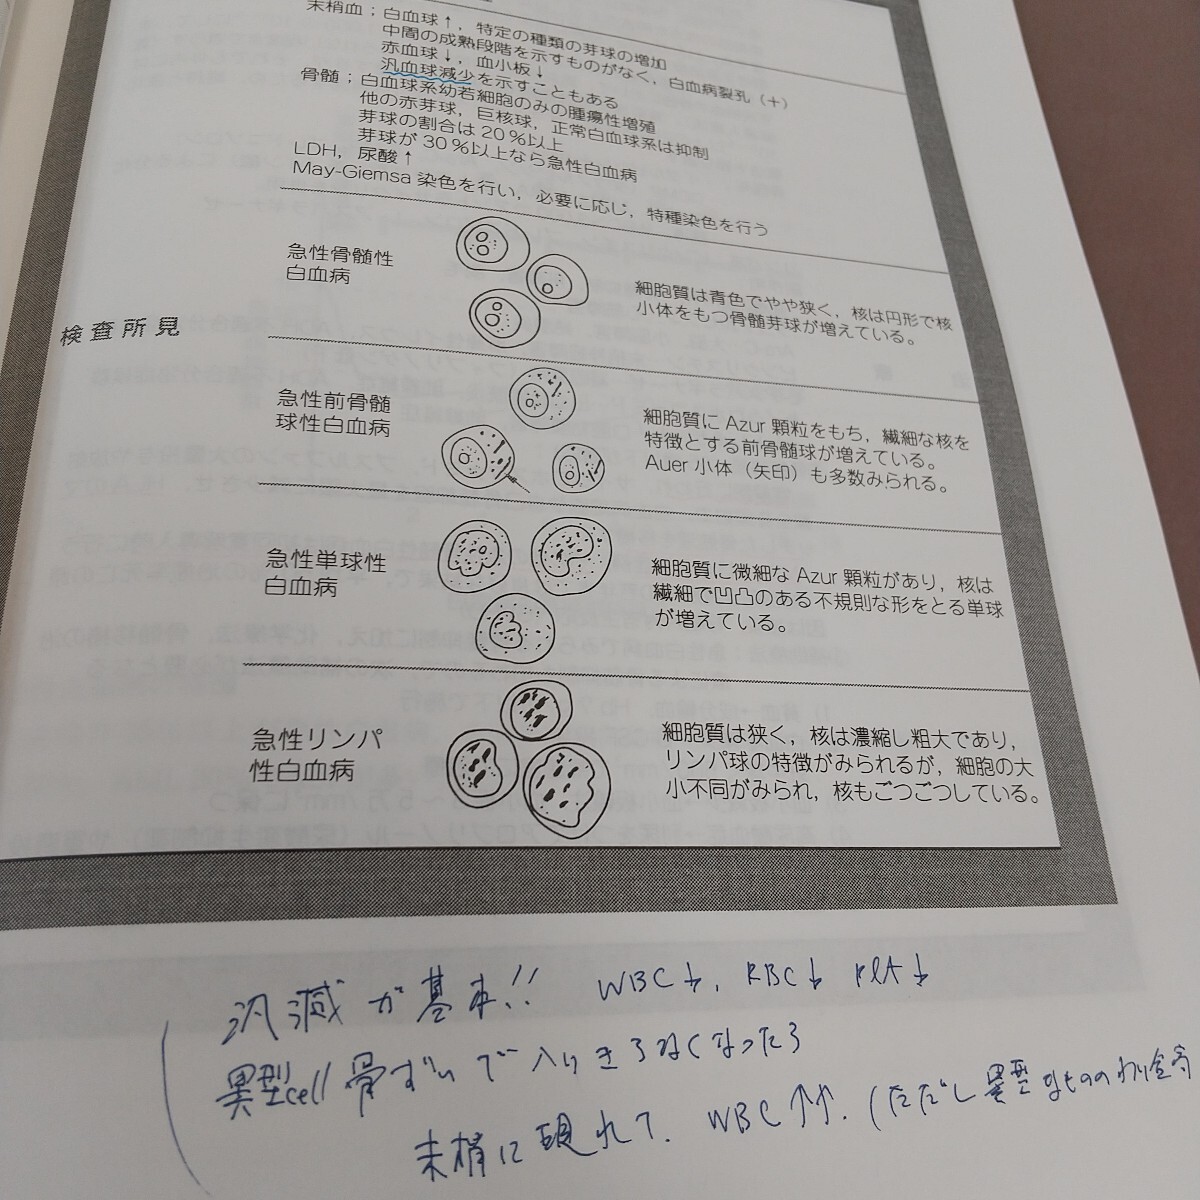 末梢血；白血球↑，特定の種類の芽球の増加
中間の成熟段階を示すものがなく，白血病裂孔（＋）
赤血球↓，血小板↓
汎血球減少を示すこともある
骨髄；白血球系幼若細胞のみの腫瘍性増殖
他の赤芽球，巨核球，正常白血球系は抑制
芽球の割合は 20％以上
芽球が 30％以上なら急性白血病
LDH，尿酸↑
May-Giemsa 染色を行い，必要に応じ，特種染色を行う
検査所見
急性骨髄性
白血病
細胞質は青色でやや狭く，核は円形で核
小体をもつ骨髄芽球が増えている。
急性前骨髄
球性白血病
細胞質に Azur 顆粒をもち，繊細な核を
特徴とする前骨髄球が増えている。
Auer 小体（矢印）も多数みられる。
急性単球性
白血病
細胞質に微細な Azur 顆粒があり，核は
繊細で凹凸のある不規則な形をとる単球
が増えている。
急性リンパ
性白血病
細胞質は狭く，核は濃縮し粗大であり，
リンパ球の特徴がみられるが，細胞の大
小不同がみられ，核もごつごつしている。
汎減が基本!! WBC↓，RBC↓ PlA↓
異型cell 骨ずいで入りきらなくなったら
末梢に現れて．WBC↑↑．（ただし異型なもののわり合